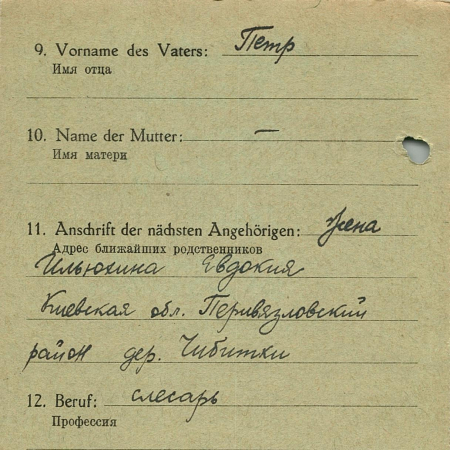 9. Vorname des Vaters: Петр
Имя отца
10. Name der Mutter: —
Имя матери
11. Anschrift der nächsten Angehörigen: жена
Адрес ближайших родственников
Ильюхина Евдокия
Киевская обл. Перивязловский
район дер. Чибитки
12. Beruf: слесарь
Профессия